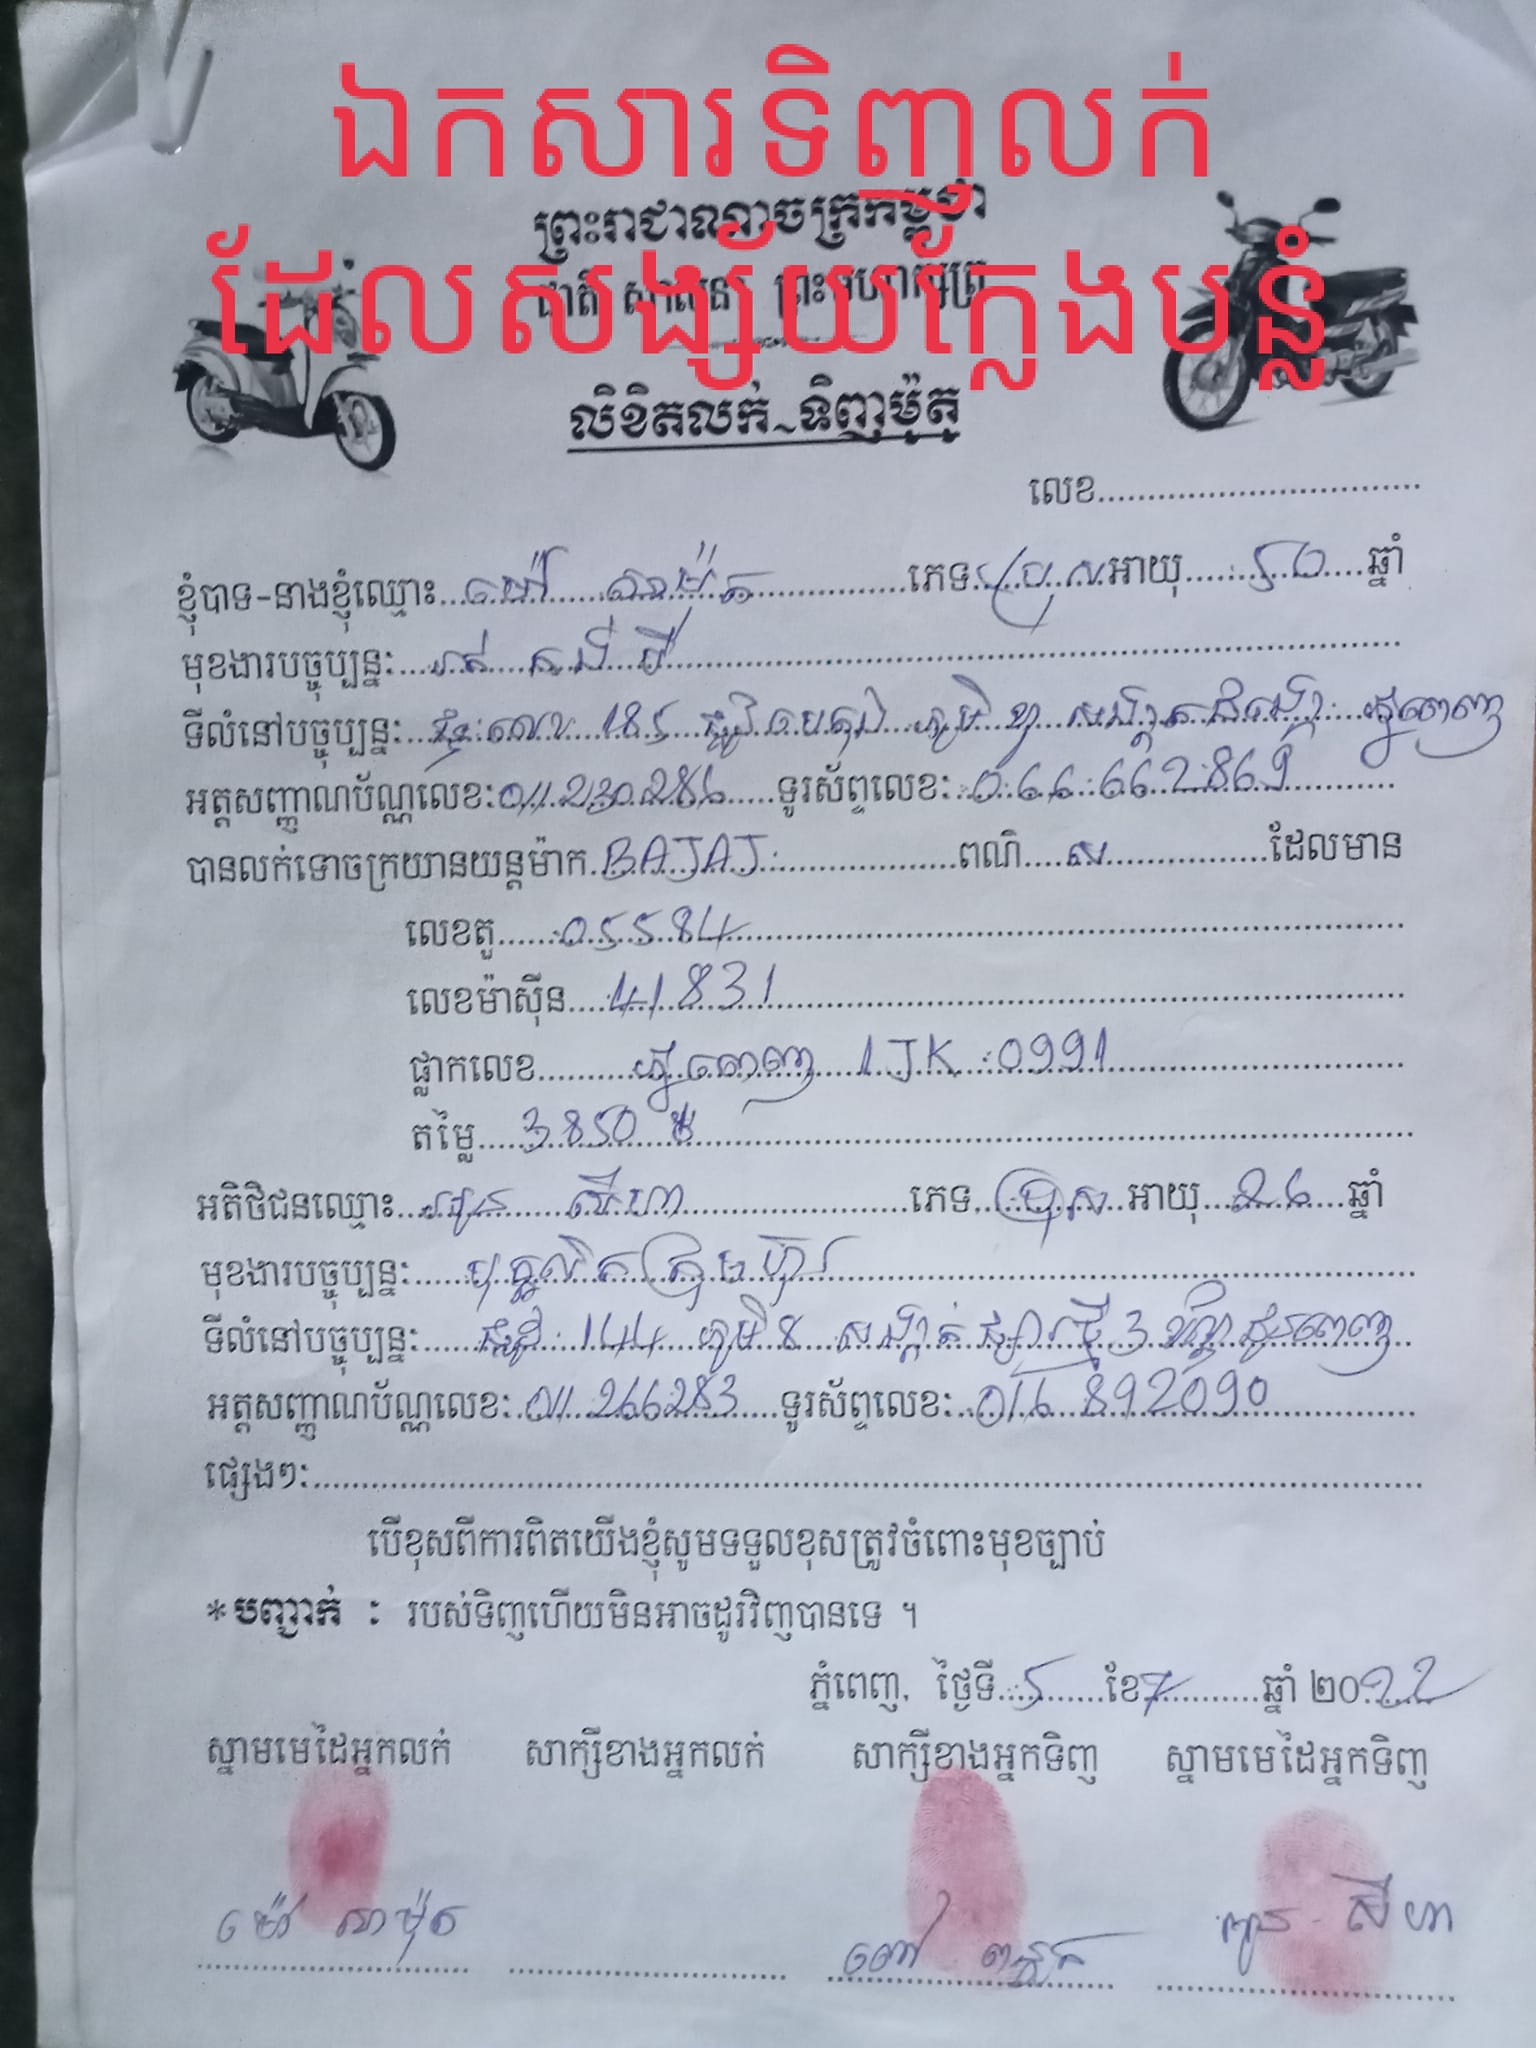 ឯកសារទិញលក់
ព្រះរាជាណាចក្រកម្ពុជា
ដែលសង្ស័យក្លែងបន្លំ
ជាតិ សាសនា ព្រះមហាក្សត្រ
លិខិតលក់-ទិញម៉ូតូ
លេខ
ខ្ញុំបាទ-នាងខ្ញុំឈ្មោះ ម៉ៅ សាម៉ុត ភេទ ប្រុស អាយុ 50 ឆ្នាំ
មុខងារបច្ចុប្បន្នៈ រត់ កង់ បី
ទីលំនៅបច្ចុប្បន្នៈ ផ្ទះលេខ 185 ផ្លូវបេតុង ភូមិ សង្កាត់ដង្កោ ភ្នំពេញ
អត្តសញ្ញាណប័ណ្ណលេខៈ 011230286 ទូរស័ព្ទលេខៈ 066 662869
បានលក់ទោចក្រយានយន្តម៉ាក BAJAJ ពណ៌ ស ដែលមាន
លេខតួ 05584
លេខម៉ាស៊ីន 41831
ផ្លាកលេខ ភ្នំពេញ 1JK 0991
តម្លៃ 3850 $
អតិថិជនឈ្មោះ សីហា ភេទ ប្រុស អាយុ 26 ឆ្នាំ
មុខងារបច្ចុប្បន្នៈ បុគ្គលិកក្រុមហ៊ុន
ទីលំនៅបច្ចុប្បន្នៈ ផ្លូវ 144 ភូមិ 8 សង្កាត់ ផ្សារថ្មី 3 ខណ្ឌ ដូនពេញ
អត្តសញ្ញាណប័ណ្ណលេខៈ 011266283 ទូរស័ព្ទលេខៈ 016 892090
ផ្សេងៗៈ
បើខុសពីការពិតយើងខ្ញុំសូមទទួលខុសត្រូវចំពោះមុខច្បាប់
*បញ្ជាក់ ៖ របស់ទិញហើយមិនអាចដូរវិញបានទេ ។
ភ្នំពេញ, ថ្ងៃទី 5 ខែ 7 ឆ្នាំ ២០22
ស្នាមមេដៃអ្នកលក់ សាក្សីខាងអ្នកលក់ សាក្សីខាងអ្នកទិញ ស្នាមមេដៃអ្នកទិញ
ម៉ៅ សាម៉ុត ពៅ សីហា